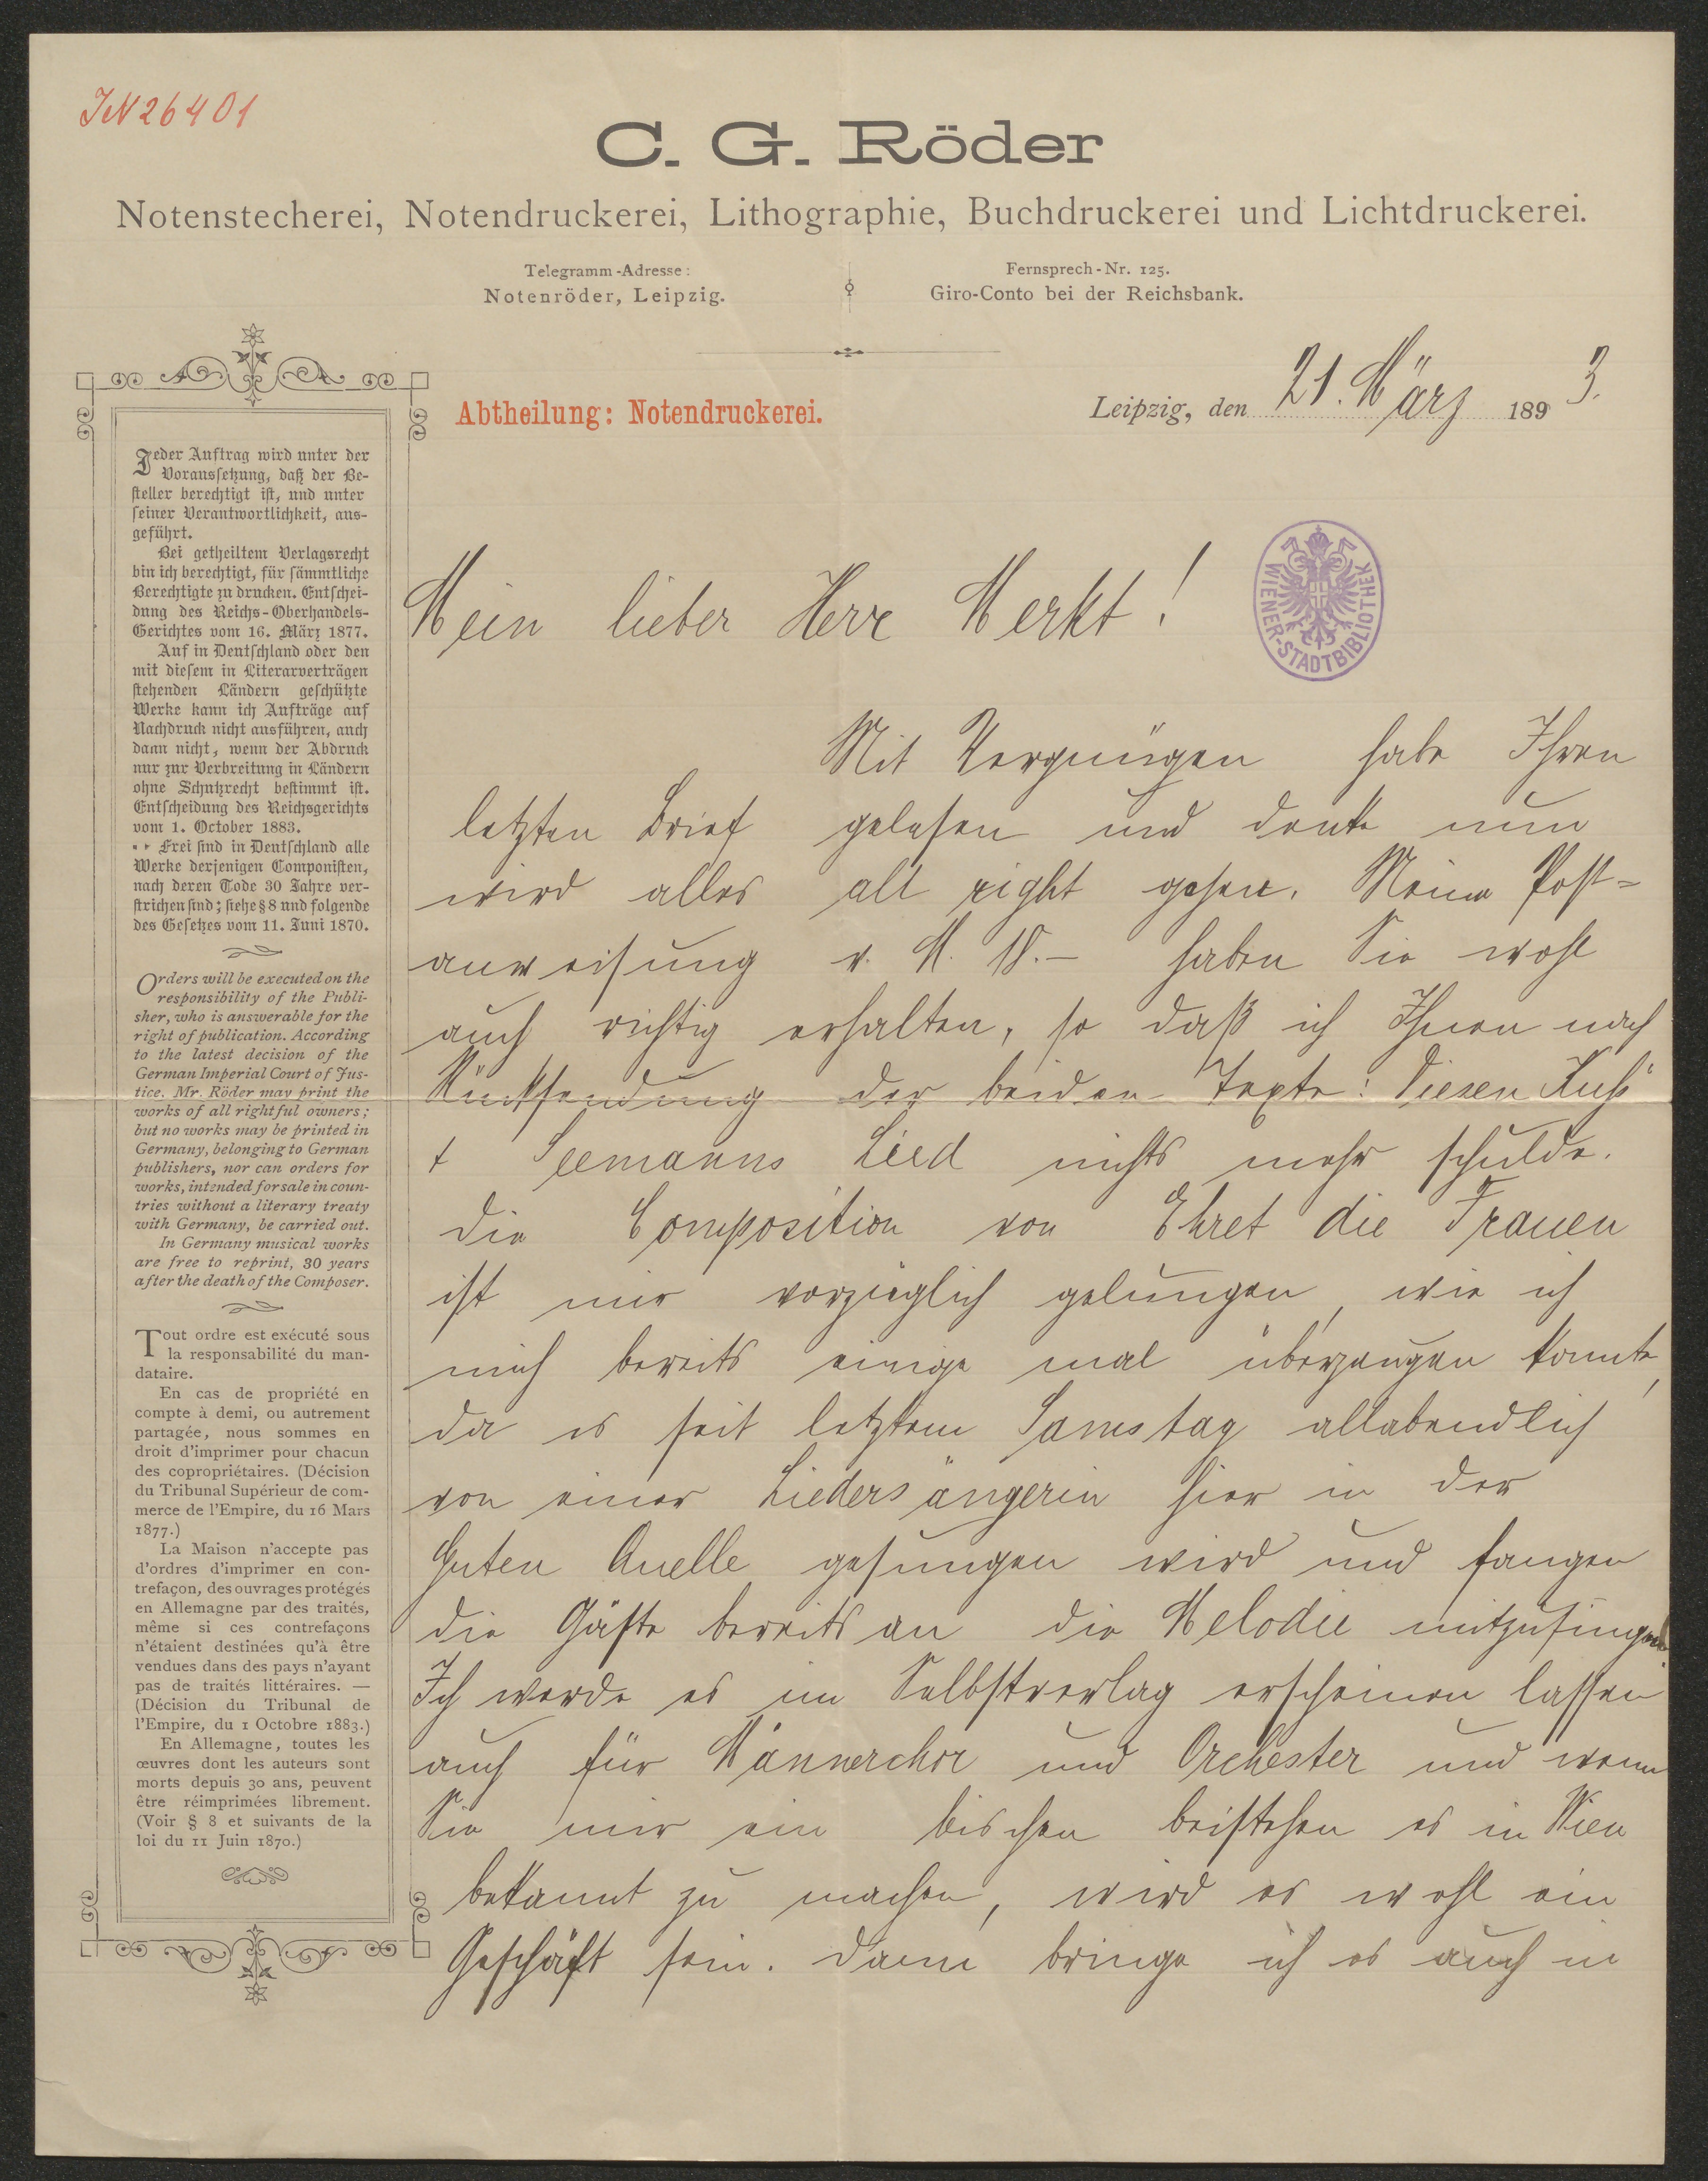 IN 26401
C. G. Röder
Notenstecherei, Notendruckerei, Lithographie, Buchdruckerei und Lichtdruckerei.
Telegramm-Adresse:
Notenröder, Leipzig.
Fernsprech-Nr. 125.
Giro-Conto bei der Reichsbank.
Abtheilung: Notendruckerei.
Leipzig, den 21. März 1893.
Jeder Auftrag wird unter der
Voraussetzung, daß der Be-
steller berechtigt ist, und unter
seiner Verantwortlichkeit, aus-
geführt.
Bei getheiltem Verlagsrecht
bin ich berechtigt, für sämmtliche
Berechtigte zu drucken. Entschei-
dung des Reichs-Oberhandels-
Gerichtes vom 16. März 1877.
Auf in Deutschland oder den
mit diesem in Literarverträgen
stehenden Ländern geschützte
Werke kann ich Aufträge auf
Nachdruck nicht ausführen, auch
dann nicht, wenn der Abdruck
nur zur Verbreitung in Ländern
ohne Schutzrecht bestimmt ist.
Entscheidung des Reichsgerichts
vom 1. October 1883.
Frei sind in Deutschland alle
Werke derjenigen Componisten,
nach deren Tode 30 Jahre ver-
strichen sind; siehe § 8 und folgende
des Gesetzes vom 11. Juni 1870.
Orders will be executed on the
responsibility of the Publi-
sher, who is answerable for the
right of publication. According
to the latest decision of the
German Imperial Court of Jus-
tice. Mr. Röder may print the
works of all rightful owners;
but no works may be printed in
Germany, belonging to German
publishers, nor can orders for
works, intended for sale in coun-
tries without a literary treaty
with Germany, be carried out.
In Germany musical works
are free to reprint, 30 years
after the death of the Composer.
Tout ordre est exécuté sous
la responsabilité du man-
dataire.
En cas de propriété en
compte à demi, ou autrement
partagée, nous sommes en
droit d'imprimer pour chacun
des copropriétaires. (Décision
du Tribunal Supérieur de com-
merce de l'Empire, du 16 Mars
1877.)
La Maison n'accepte pas
d'ordres d'imprimer en con-
trefaçon, des ouvrages protégés
en Allemagne par des traités,
même si ces contrefaçons
n'étaient destinées qu'à être
vendues dans des pays n'ayant
pas de traités littéraires. —
(Décision du Tribunal de
l'Empire, du 1 Octobre 1883.)
En Allemagne, toutes les
œuvres dont les auteurs sont
morts depuis 30 ans, peuvent
être réimprimées librement.
(Voir § 8 et suivants de la
loi du 11 Juin 1870.)
WIENER-STADTBIBLIOTHEK
Mein lieber Herr Merkt!
Mit Vergnügen habe Ihren
letzten Brief gelesen und denke nun
wird alles all right gehen. Meine Post-
anweisung v. M. 18.– haben Sie wohl
auch richtig erhalten, so daß ich Ihnen nach
Rücksendung der beiden Texte: Diesen Kuß
+ Seemanns Lied nichts mehr schulde.
Die Composition von Ehret die Frauen
ist mir vorzüglich gelungen, wie ich
mich bereits einige mal überzeugen konnte,
da es seit letztem Samstag allabendlich
von einer Liedersängerin hier in der
Guten Quelle gesungen wird und fangen
die Gäste bereits an die Melodie mitzusingen.
Ich werde es im Selbstverlag erscheinen lassen
auch für Männerchor und Orchester und wenn
Sie mir ein bischen beistehen es in Wien
bekannt zu machen, wird es wohl ein
Geschäft sein. Dann bringe ich es auch in